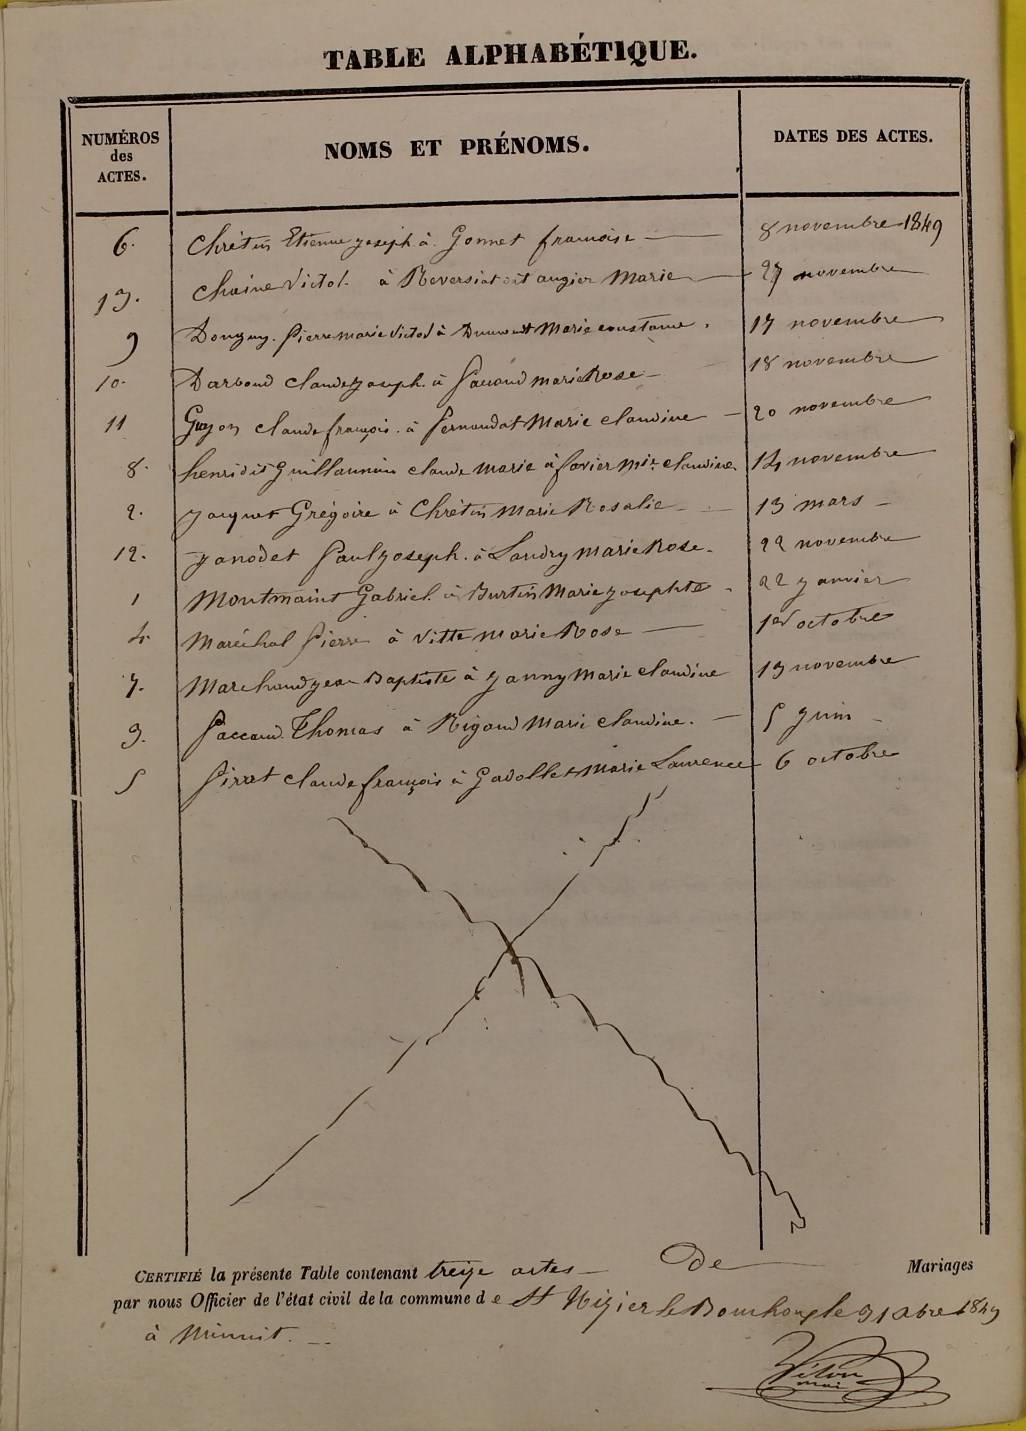 TABLE ALPHABÉTIQUE.
NUMÉROS des ACTES. NOMS ET PRÉNOMS. DATES DES ACTES.
6. Chrétin Etienne joseph à Gonnet françoise 8 novembre 1849
13. Chaine Victol. à Reversiat dit augier Marie 27 novembre
9 pierre marie Victol à Marie constance. 17 novembre
10. Darboud claude joseph. à paccoud marie Rose 18 novembre
11 Guyon claude françois. à pernoudat Marie claudine 20 novembre
8. henri dit Guillaumin claude marie à favier Mie claudine. 14 novembre
2. jacquet Grégoire à Chrétin Marie Rosalie 13 mars
12. janodet paul joseph. à Landry marie Rose. 22 novembre
1 Montmaint Gabriel. à Burtin Marie josephte 22 janvier
4. Maréchal pierre à Vitte marie Rose 1er octobre
7. Marchand jean Baptiste à janny Marie claudine 13 novembre
3. paccaud. Thomas à Rigaud Marie claudine. 5 juin
5 pirat claude françois à Gavollet Marie Laurence 6 octobre
CERTIFIÉ la présente Table contenant treize actes de Mariages
par nous Officier de l'état civil de la commune de St Nizier le Bouchoux le 31 xbre 1849
à Minuit.